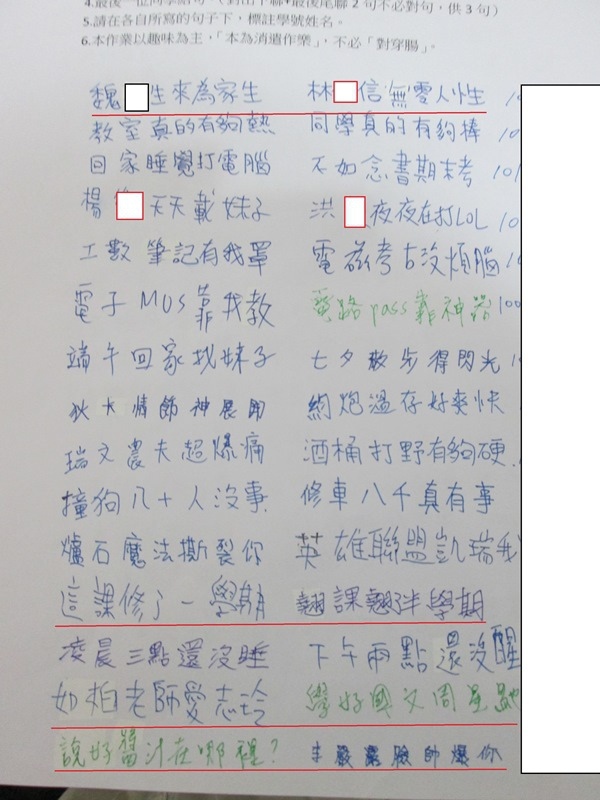 4.最後一位同學結句,(對出下聯+最後尾聯2句不必對句,供3句)
5.請在各自所寫的句子下,標註學號姓名。
6.本作業以趣味為主,「本為消遣作樂」,不必「對穿腸」。
魏 生來為家生 林 信無零人性 10
教室真的有夠熱 同學真的有夠棒 10
回家睡覺打電腦 不如念書期末考 101
楊 天天載妹子 洪 夜夜在打LOL 10
工數筆記有我罩 電磁考古沒煩腦 10
電子MOS靠我教 電路pass靠神器 100
端午回家找妹子 七夕散步得閃光 1
狄大情節神展開 約炮溫存好爽快
瑞文農夫超爆痛 酒桶打野有夠硬
撞狗八十人沒事 修車八千真有事
爐石魔法撕裂你 英雄聯盟凱瑞我
這課修了一學期 翹課翹半學期
凌晨三點還沒睡 下午兩點還沒醒
如柏老師愛志玲 學好國文周星馳
說好醬汁在哪裡? 半殺還臉帥爆你